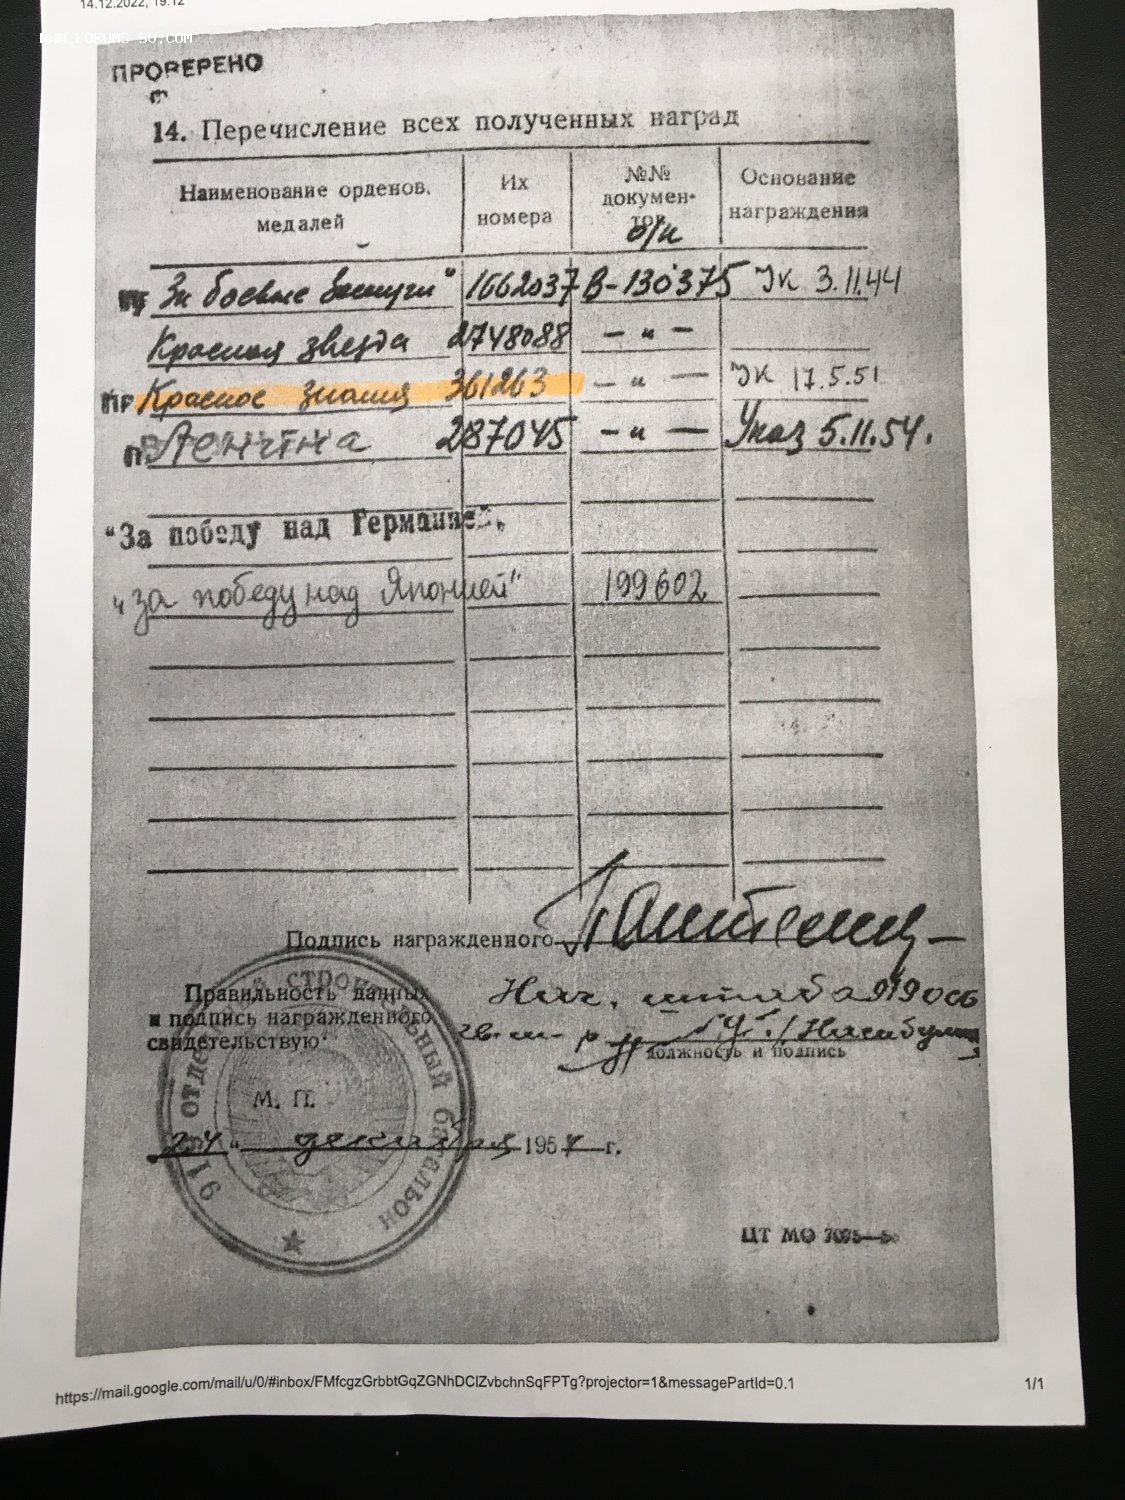 14.12.2022, 19:12
WWW.FORUMS-SU.COM
ПРОВЕРЕНО
14. Перечисление всех полученных наград
Наименование орденов, медалей
Их номера
№№ документов
Основание награждения
б/н
За боевые заслуги" 1662037 В-130375 УК 3.11.44
Красная звезда 2748088 — " —
Красное знамя 361263 — " — УК 17.5.51
Ленина 287045 — " — Указ 5.11.54.
"За победу над Германией",
"За победу над Японией" 199602
Подпись награжденного
Правильность данных Нач. штаба 919 осб
и подпись награжденного гв. м-р
свидетельствую
должность и подпись
М. П.
24 " декабря 1957 г.
строительный батальон
ЦТ МО
https://mail.google.com/mail/u/0/#inbox/FMfcgzGrbbtGqZGNhDClZvbchnSqFPTg?projector=1&messagePartId=0.1
1/1